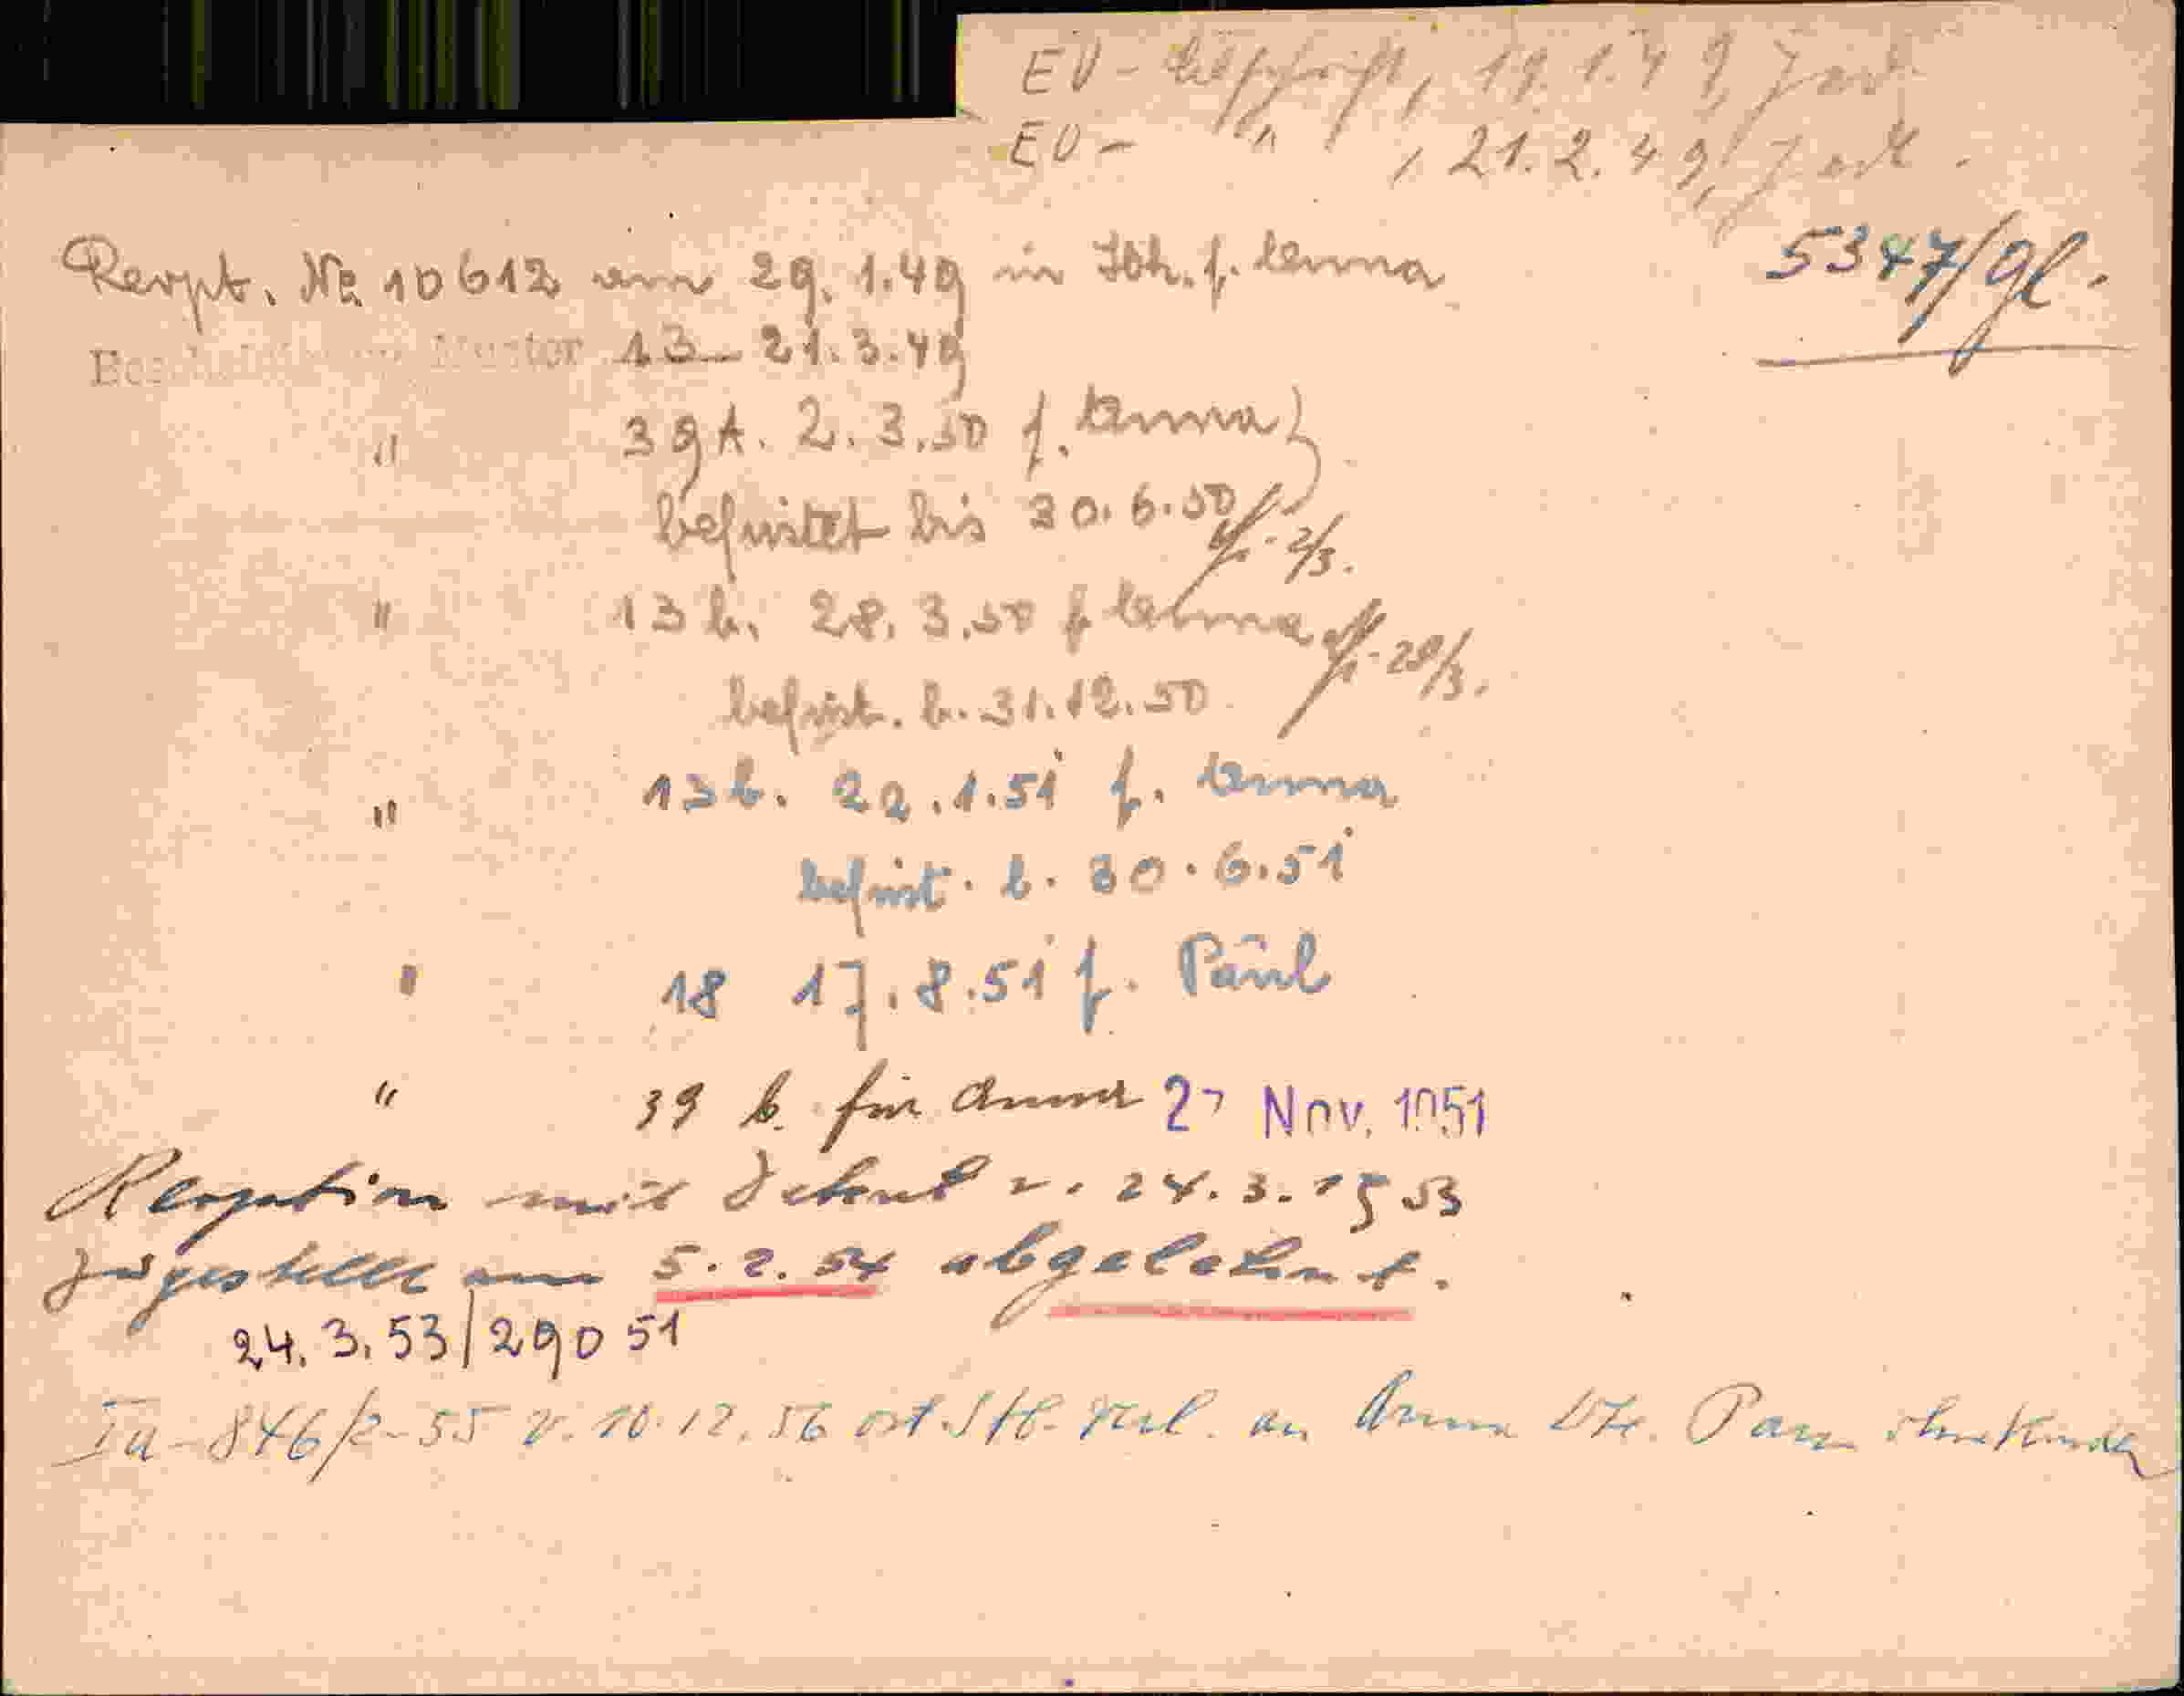 EV - , 19.1.49,
EV - " , 21.2.49,
5347/gl.
Rezpt. No. 10612 am 29.1.49 in Idh. f. Anna
Muster 13 21.3.49
" 39A. 2.3.50 f. Anna
befristet bis 30.6.50 2/3.
" 13 b. 28.3.50 f Anna 28/3.
befrist. b. 31.12.50.
" 13 b. 22.1.51 f. Anna
befrist. b. 30.6.51
" 18 17.8.51 f. Paul
" 39 b. für Anna 27 Nov. 1951
Rezeption mit Dekret v. 24.3.1953
zugestellt am 5.2.54 abgelehnt.
24.3.53/29051
Ia-846/2-55 v. 10.12.56 öst. Stb. verl. an Anna ohne Kinder